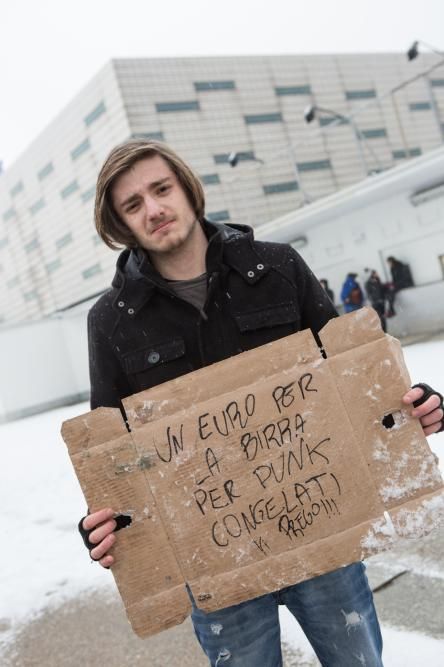 UN EURO PER
LA BIRRA
PER PUNK
CONGELATI
VI PREGO!!!